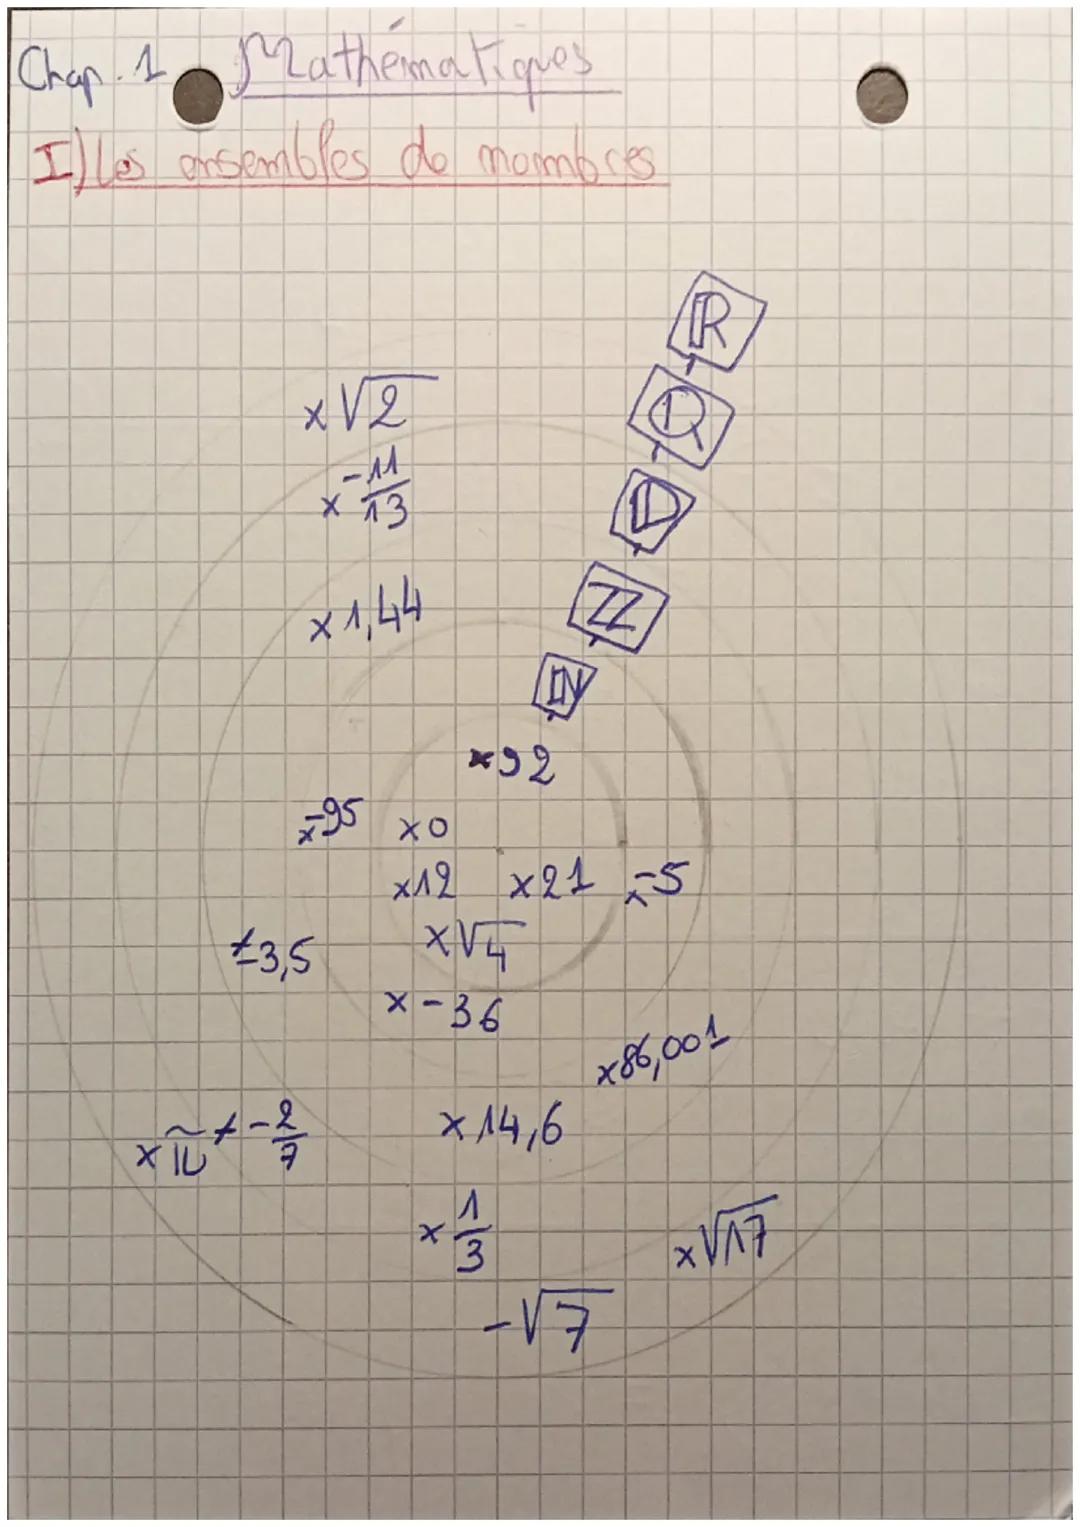 Chap. 1 Mathématiques
I) Les ensembles de nombres
ℝ
ℚ
x √2
x -11/13
𝔻
x 1,44
ℤ
ℕ
x 92
x -95
x 0
x 12
x 21
x -5
x √4
x -3,5
x -36
x 86,001
x π
x -2/7
x 14,6
x 1/3
x √17
-√7